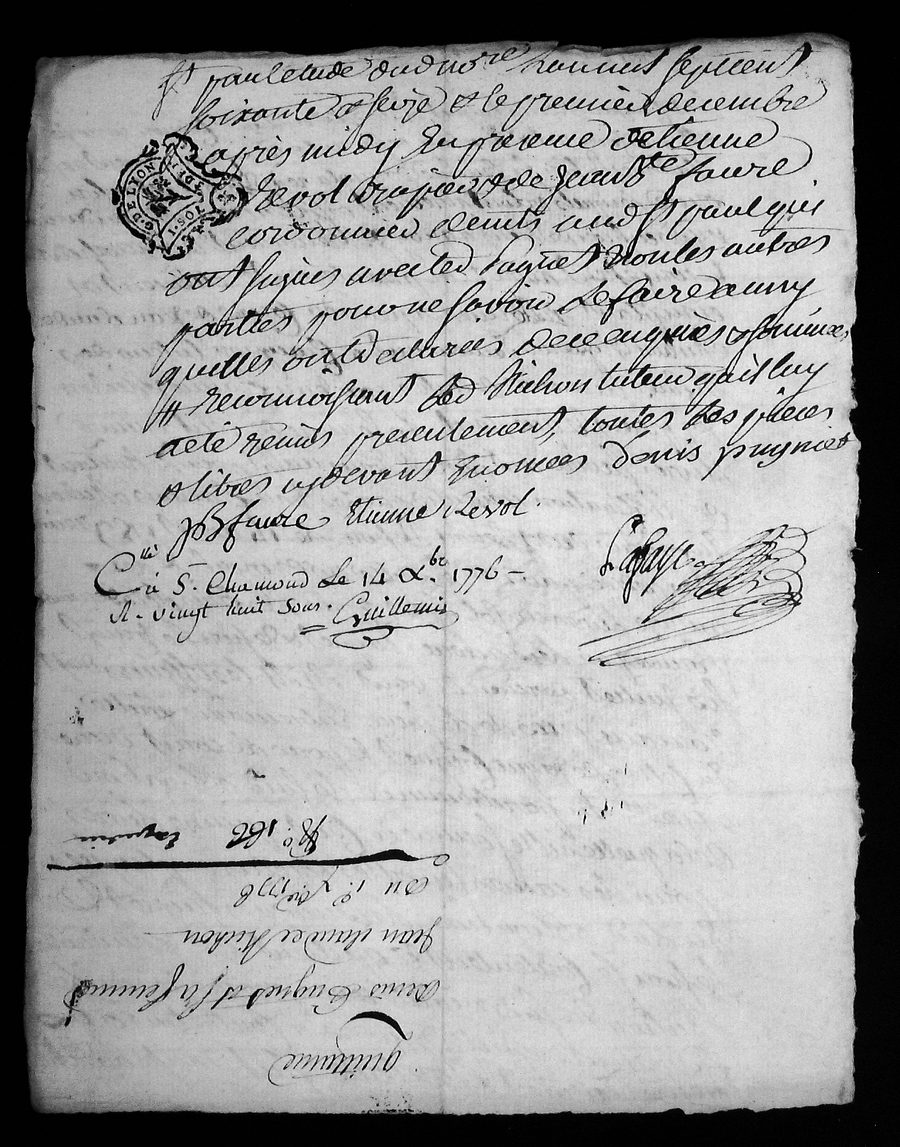 St paul etude dud no.re lan mil sept cent
soixante & seize & le premier decembre
après midy En presence detienne
Revol & de Jean Bte faure
cordonnier dud St paul qui
ont signes avec led pugniet non les autres
parties pour ne savoir le faire ainsy
quelles ont declarées de ce enquises & sommées
# reconnoissant led Nichon tuteur quil luy
a été remis presentement, toutes les pieces
& titres cydevant Enoncés denis pugniet
JB faure Etienne Revol.
Lafaye
C.lé à St Chamond Le 14 Xbre 1776 –
R. vingt huit sous. Guillemin
G. DE LYON
1 SOL
quittance
denis Pugniet et sa femme
Jean claude Nichon
Du 1er Xbre 1776
No. 166